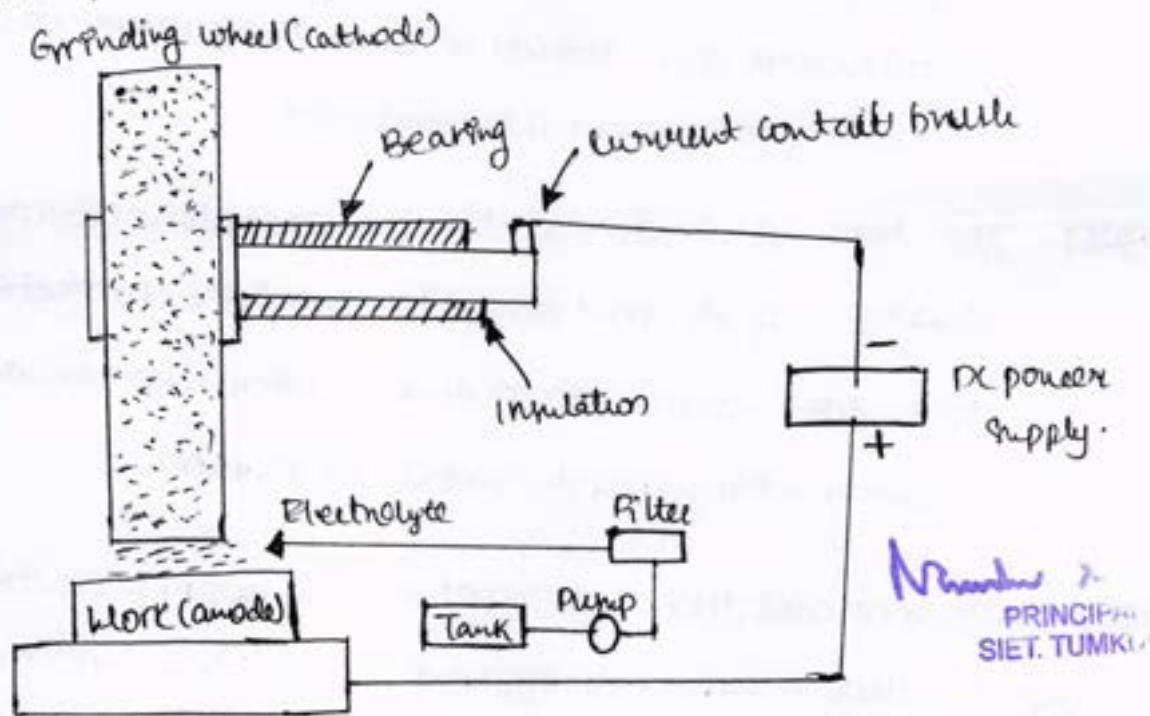 Grinding wheel (cathode)
Bearing
current contact brush
Insulation
−
DC power
supply.
+
Electrolyte
Filter
Pump
Tank
Work (anode)
PRINCIPA
SIET. TUMK